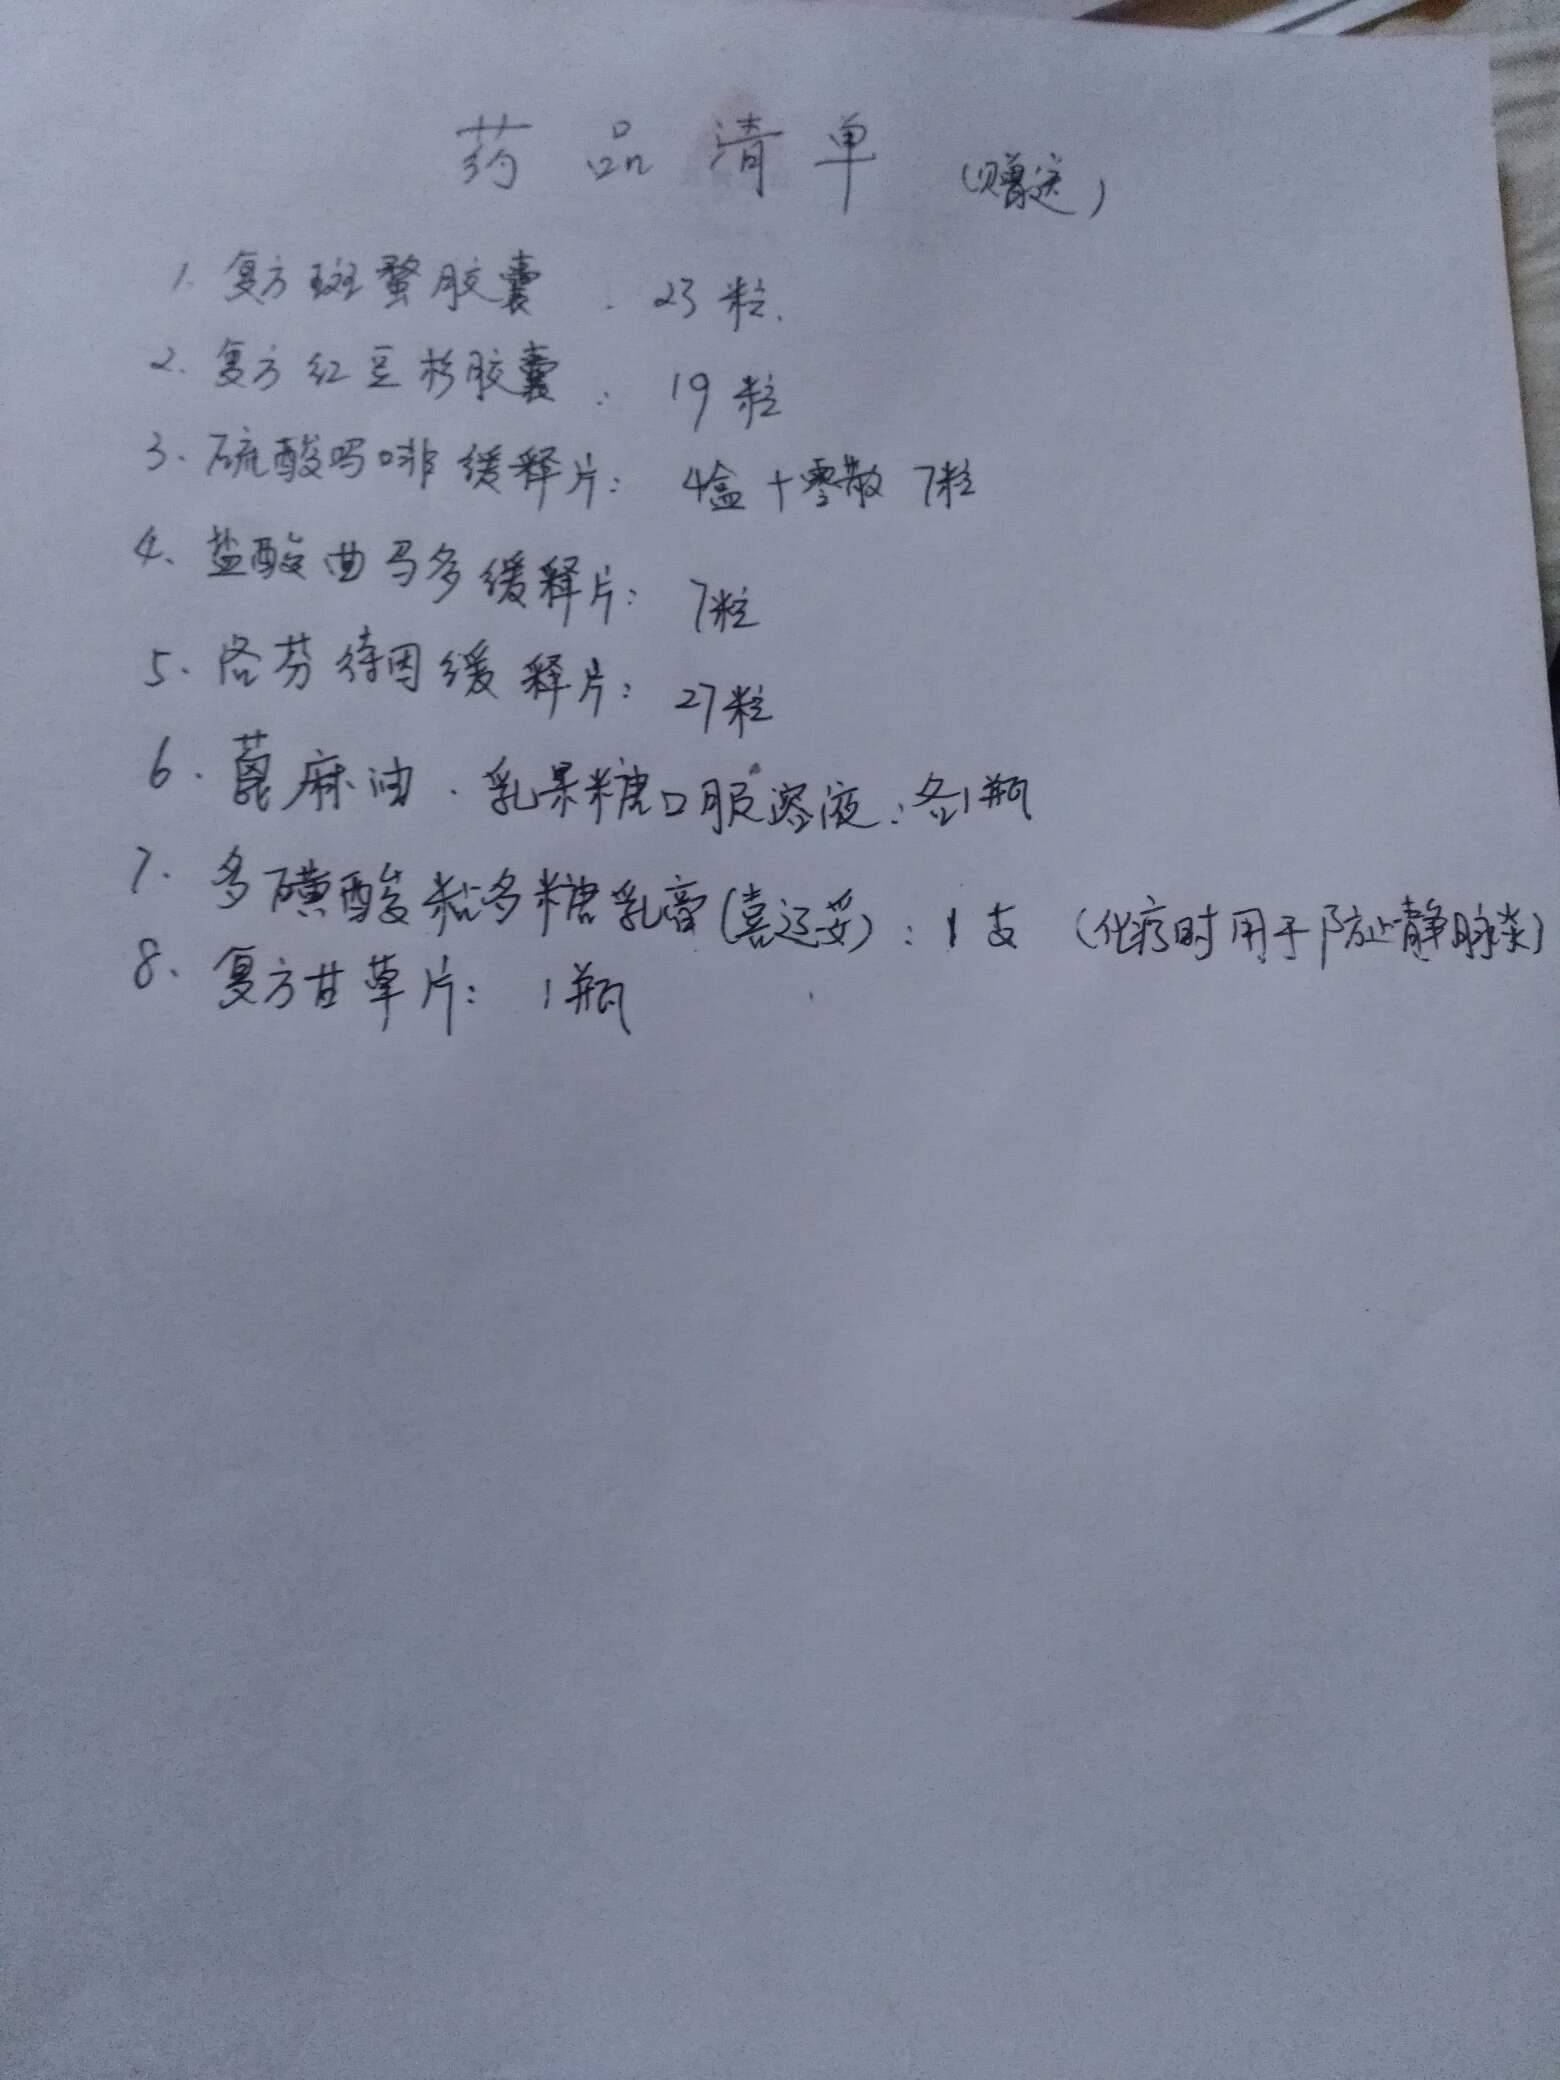 药品清单 (赠送)
1. 复方斑蝥胶囊 . 23粒.
2. 复方红豆杉胶囊 : 19粒
3. 硫酸吗啡缓释片: 4盒+零散7粒
4. 盐酸曲马多缓释片: 7粒
5. 洛芬待因缓释片: 27粒
6. 蓖麻油 . 乳果糖口服溶液: 各1瓶
7. 多磺酸粘多糖乳膏(喜辽妥): 1支 (化疗时用于防止静脉炎)
8. 复方甘草片: 1瓶